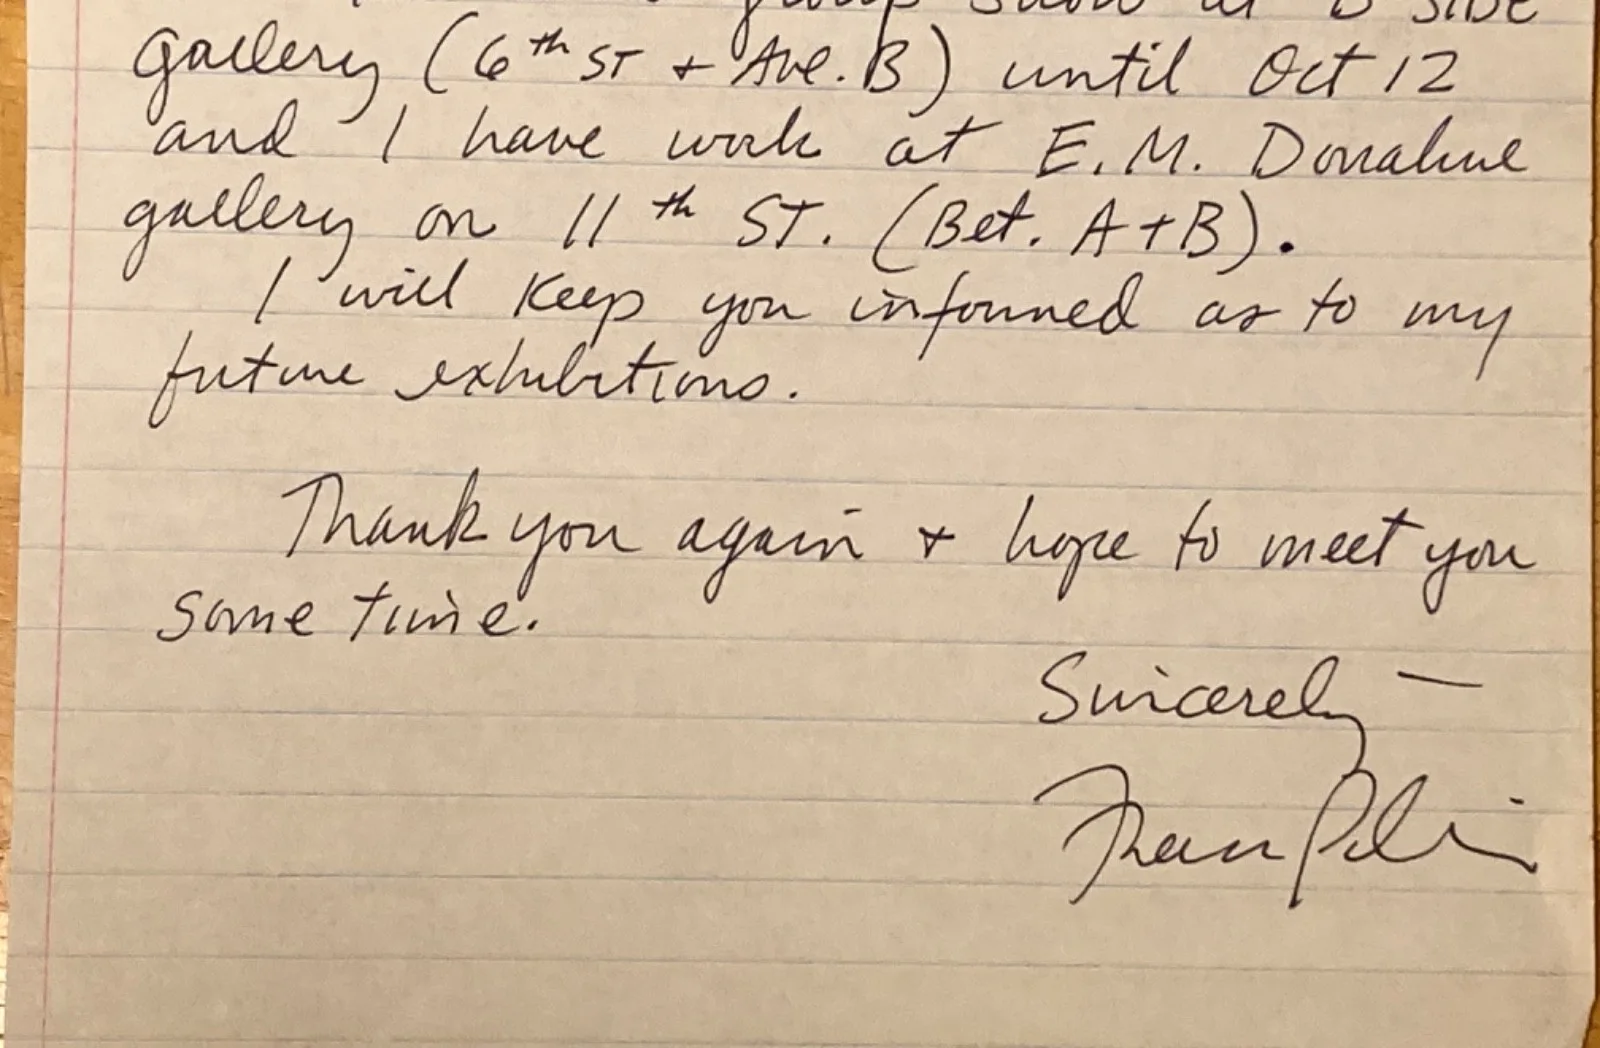 group show at B SIDE
gallery (6th ST + Ave. B) until Oct 12
and I have work at E.M. Donahue
gallery on 11th ST. (Bet. A+B).
I will keep you informed as to my
future exhibitions.
Thank you again + hope to meet you
some time.
Sincerely —
Fran